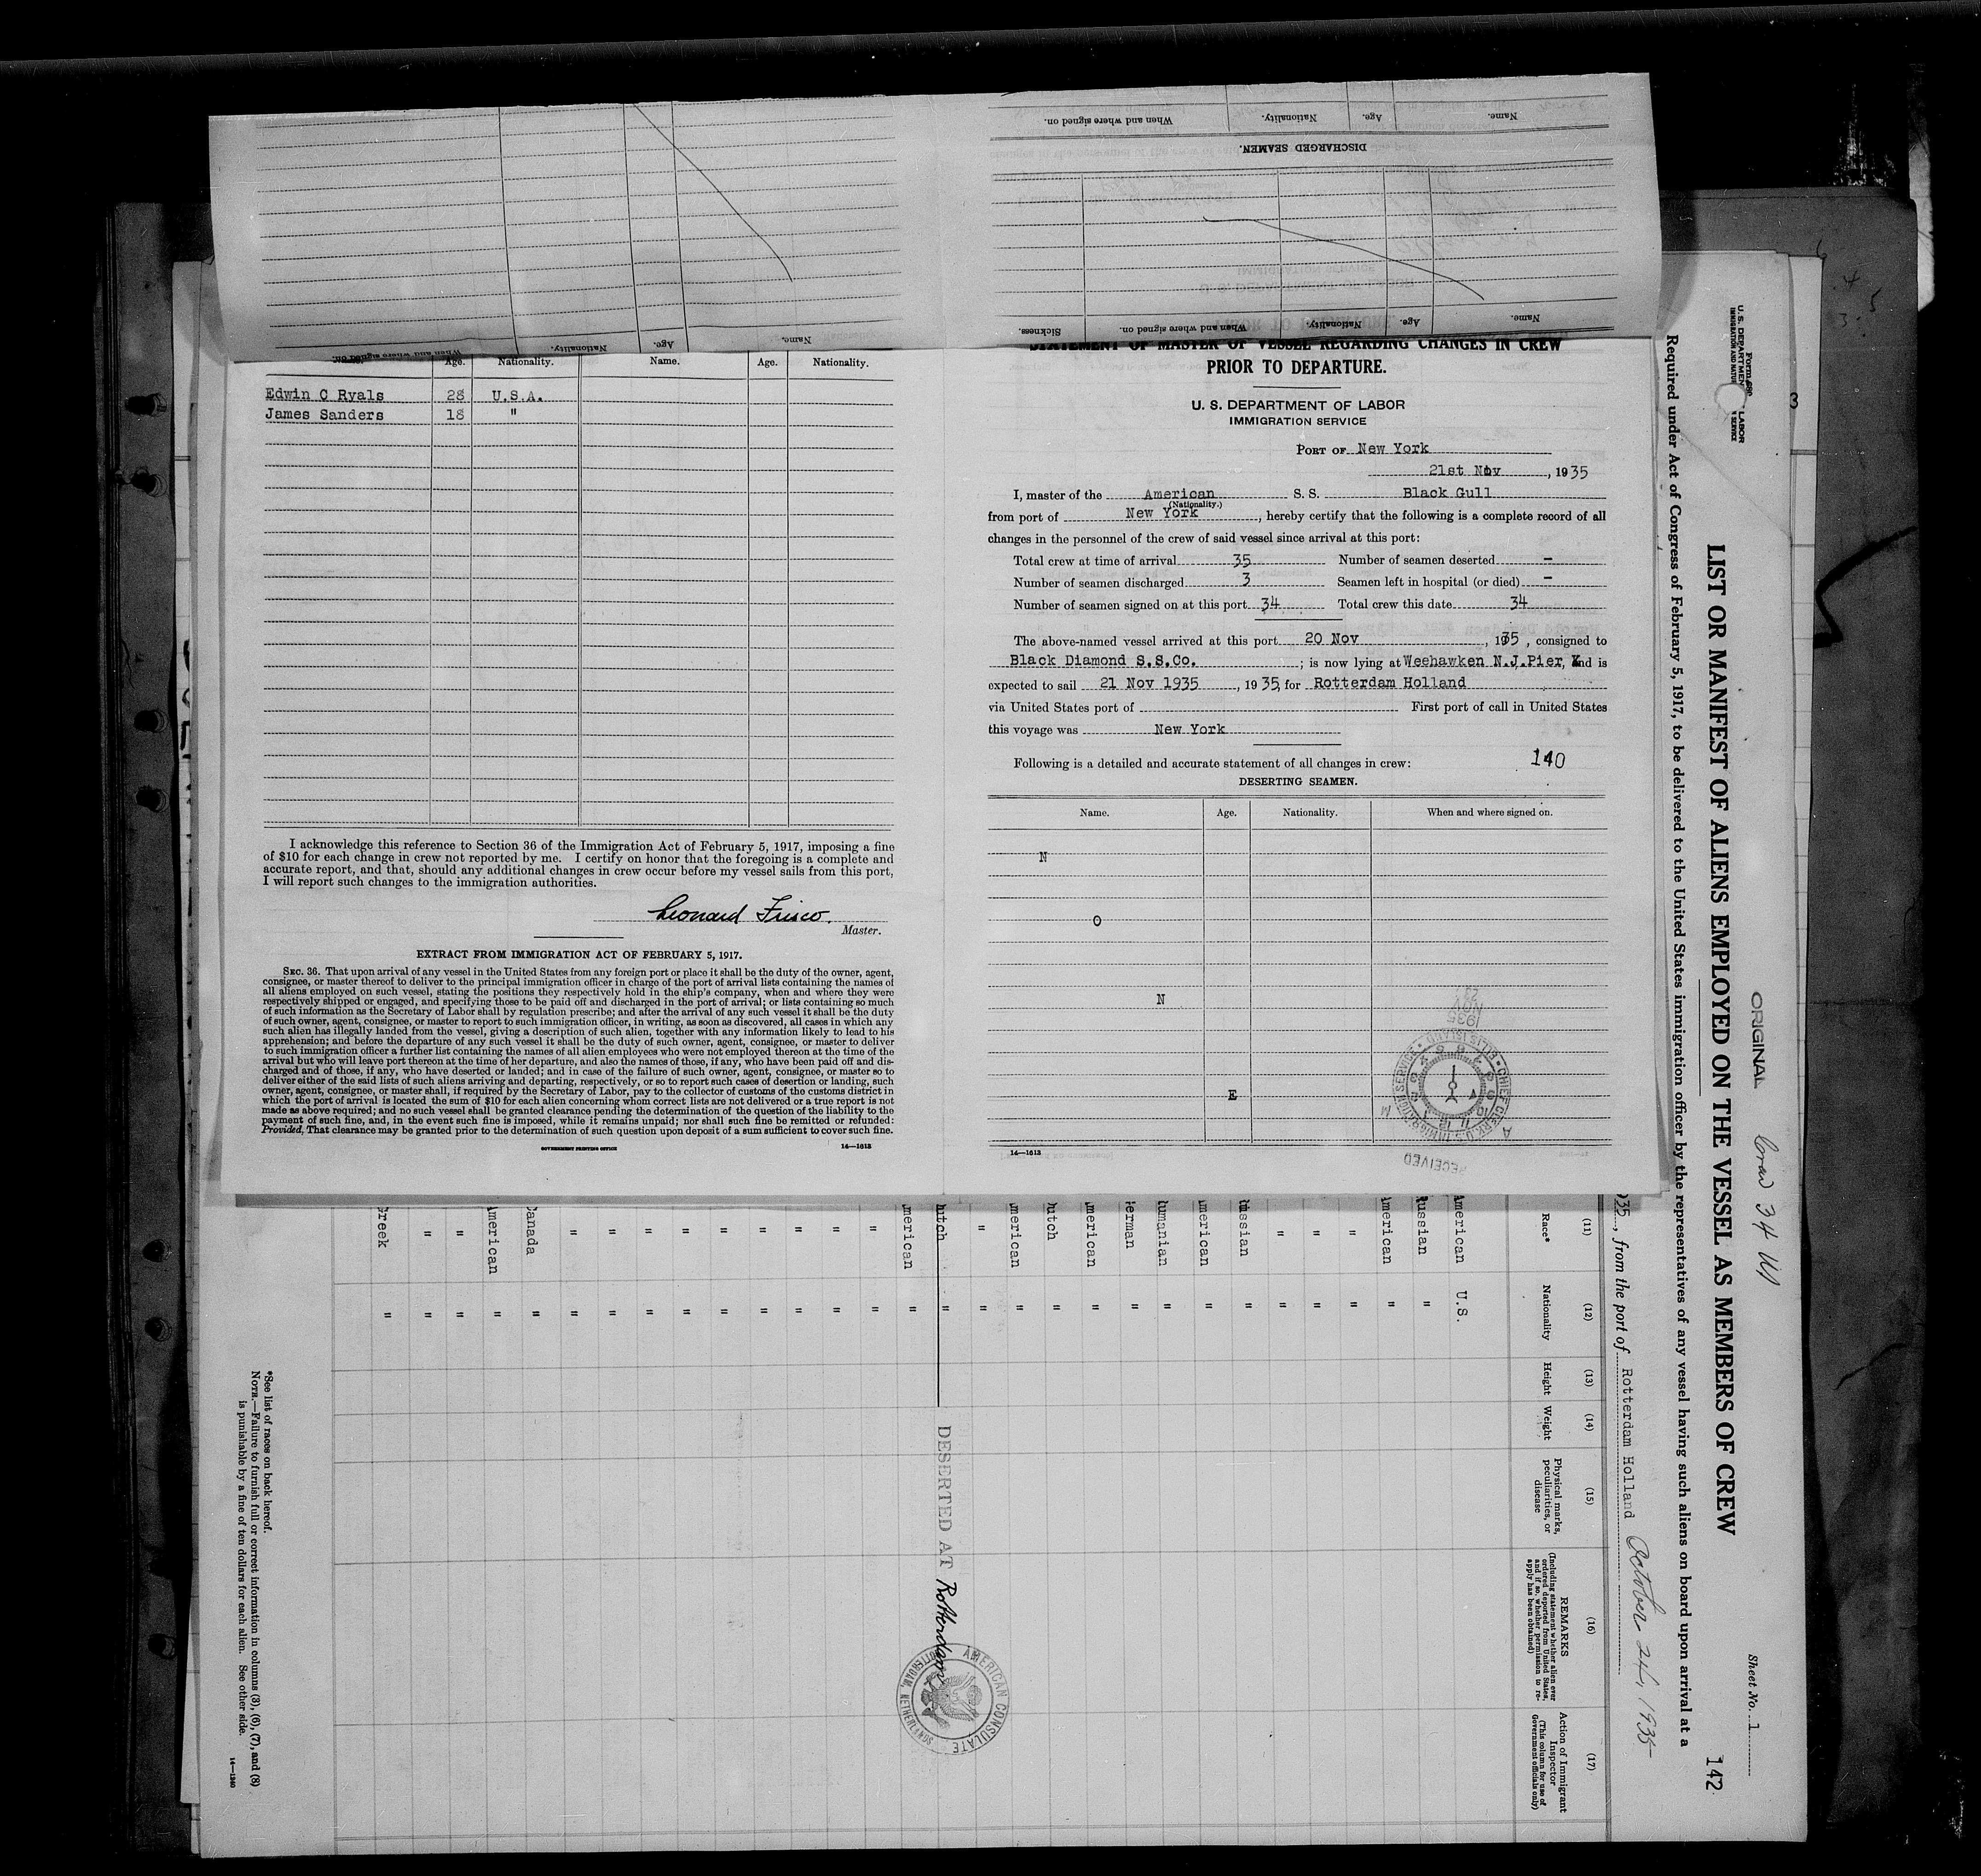 Name. Age. Nationality. When and where signed on.
DISCHARGED SEAMEN.
Name. Age. Nationality. When and where signed on. Sickness.
Name. Age. Nationality. When and where signed on.
Age. Nationality. Name. Age. Nationality.
Edwin C Ryals 28 U.S.A.
James Sanders 18 "
I acknowledge this reference to Section 36 of the Immigration Act of February 5, 1917, imposing a fine
of $10 for each change in crew not reported by me. I certify on honor that the foregoing is a complete and
accurate report, and that, should any additional changes in crew occur before my vessel sails from this port,
I will report such changes to the immigration authorities.
Leonard Frisco.
Master.
EXTRACT FROM IMMIGRATION ACT OF FEBRUARY 5, 1917.
SEC. 36. That upon arrival of any vessel in the United States from any foreign port or place it shall be the duty of the owner, agent,
consignee, or master thereof to deliver to the principal immigration officer in charge of the port of arrival lists containing the names of
all aliens employed on such vessel, stating the positions they respectively hold in the ship's company, when and where they were
respectively shipped or engaged, and specifying those to be paid off and discharged in the port of arrival; or lists containing so much
of such information as the Secretary of Labor shall by regulation prescribe; and after the arrival of any such vessel it shall be the duty
of such owner, agent, consignee, or master to report to such immigration officer, in writing, as soon as discovered, all cases in which any
such alien has illegally landed from the vessel, giving a description of such alien, together with any information likely to lead to his
apprehension; and before the departure of any such vessel it shall be the duty of such owner, agent, consignee, or master to deliver
to such immigration officer a further list containing the names of all alien employees who were not employed thereon at the time of the
arrival but who will leave port thereon at the time of her departure, and also the names of those, if any, who have been paid off and dis-
charged and of those, if any, who have deserted or landed; and in case of the failure of such owner, agent, consignee, or master so to
deliver either of the said lists of such aliens arriving and departing, respectively, or so to report such cases of desertion or landing, such
owner, agent, consignee, or master shall, if required by the Secretary of Labor, pay to the collector of customs of the customs district in
which the port of arrival is located the sum of $10 for each alien concerning whom correct lists are not delivered or a true report is not
made as above required; and no such vessel shall be granted clearance pending the determination of the question of the liability to the
payment of such fine, and, in the event such fine is imposed, while it remains unpaid; nor shall such fine be remitted or refunded:
Provided, That clearance may be granted prior to the determination of such question upon deposit of a sum sufficient to cover such fine.
GOVERNMENT PRINTING OFFICE 14—1613
STATEMENT OF MASTER OF VESSEL REGARDING CHANGES IN CREW
PRIOR TO DEPARTURE.
U. S. DEPARTMENT OF LABOR
IMMIGRATION SERVICE
PORT OF New York
21st Nov, 1935
I, master of the American S. S. Black Gull
(Nationality.)
from port of New York, hereby certify that the following is a complete record of all
changes in the personnel of the crew of said vessel since arrival at this port:
Total crew at time of arrival 35 Number of seamen deserted –
Number of seamen discharged 3 Seamen left in hospital (or died) –
Number of seamen signed on at this port 34 Total crew this date 34
The above-named vessel arrived at this port 20 Nov, 1935, consigned to
Black Diamond S.S.Co. ; is now lying at Weehawken N.J.Pier, and is
expected to sail 21 Nov 1935, 1935, for Rotterdam Holland
via United States port of First port of call in United States
this voyage was New York
Following is a detailed and accurate statement of all changes in crew: 140
DESERTING SEAMEN.
Name. Age. Nationality. When and where signed on.
N
O
N
E
CHIEF CLERK U.S. IMMIGRATION SERVICE ELLIS ISLAND
RECEIVED
14—1613
LABOR
ORIGINAL Crew 34 W
Sheet No. 1
LIST OR MANIFEST OF ALIENS EMPLOYED ON THE VESSEL AS MEMBERS OF CREW 142
Required under Act of Congress of February 5, 1917, to be delivered to the United States immigration officer by the representatives of any vessel having such aliens on board upon arrival at a
35, from the port of Rotterdam Holland October 24, 1935
(11) (12) (13) (14) (15) (16) (17)
Race* Nationality Height Weight Physical marks, peculiarities, or disease REMARKS (Including statement whether alien ever ordered deported from United States, and if so, whether permission to re-apply has been obtained) Action of Immigrant Inspector (This column for use of Government officials only)
merican U.S.
ussian "
merican "
" "
" "
" "
ussian "
merican "
umanian "
erman "
merican "
utch "
merican "
" "
utch " DESERTED AT Rotterdam
AMERICAN CONSULATE ROTTERDAM, NETHERLANDS
merican "
" "
" "
" "
" "
" "
" "
" "
" "
" "
anada "
merican "
" "
" "
reek "
*See list of races on back hereof.
NOTE.—Failure to furnish full or correct information in columns (3), (6), (7), and (8)
is punishable by a fine of ten dollars for each alien. See other side.
14—1240